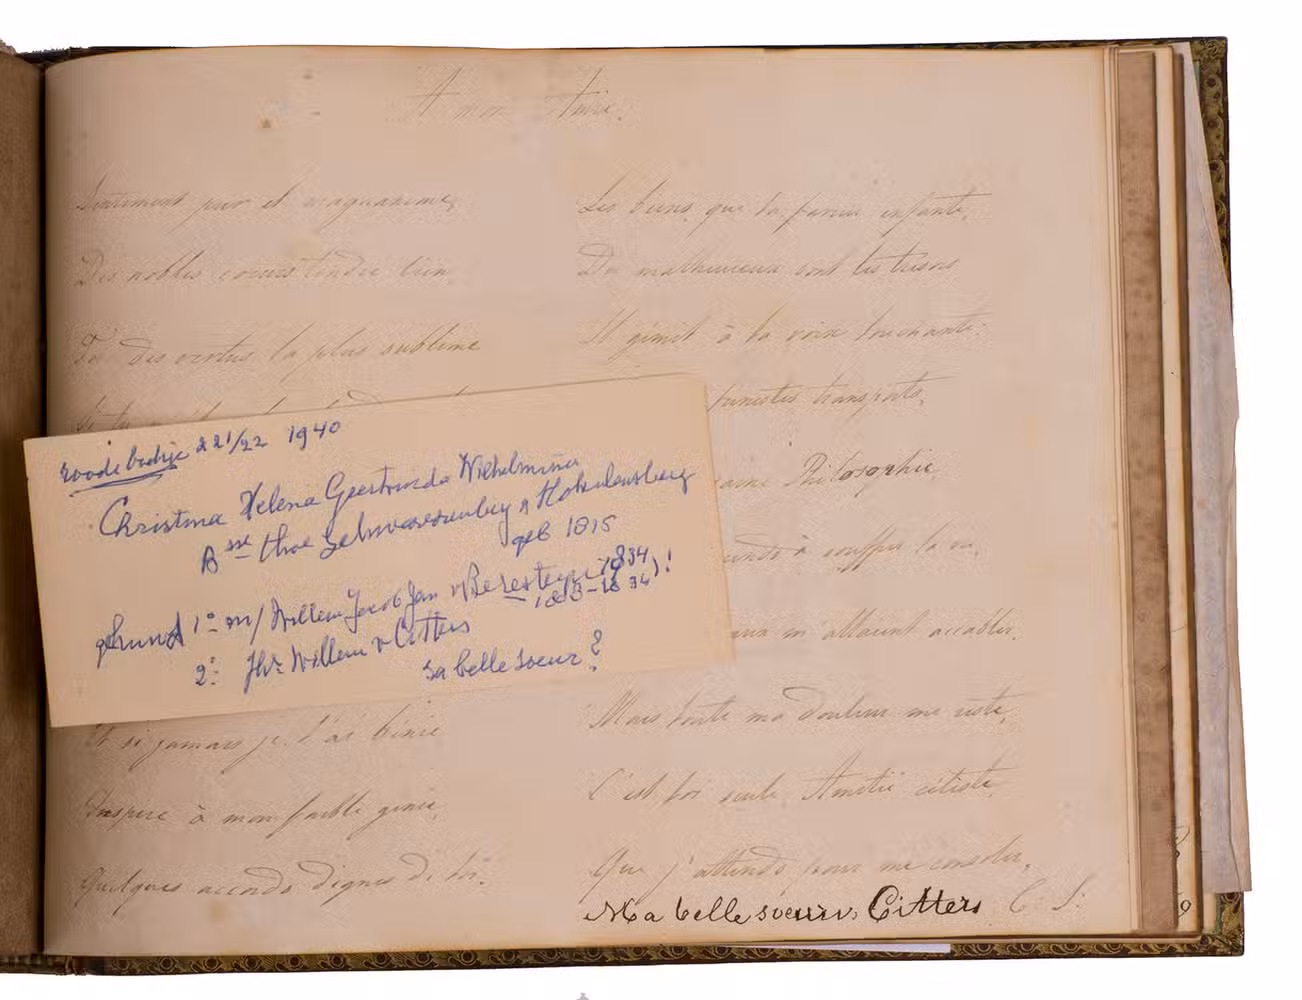 A mon Amie.
Sentiment pur et magnanime,
Des nobles coeurs tendre lien
des vertus la plus sublime
Et si jamais je t'ai bénie
Inspire à mon faible génie,
Quelques accords dignes de toi.
Les biens que la parvient enfante,
Du malheureux sont les trésors
Il gémit à ta voix touchante:
funestes transports,
Philosophie
à souffrir la vie,
m'attaint accabler.
Mais toute ma douleur me reste,
C'est toi seule Amitié céleste
Que j'attends pour me consoler.
Ma belle soeur v. Citters C. S.
roode boekje 221/22 1940
Christina Helena Geertruida Wilhelmina
Bsse thoe Schwarzenberg & Hohelansberg
geb 1815
gehuwd 1º m/ Willem Jacob Jan v Beresteyn (1834)!
1803-1834
2º: Jhr Willem v Citters
sa belle soeur?